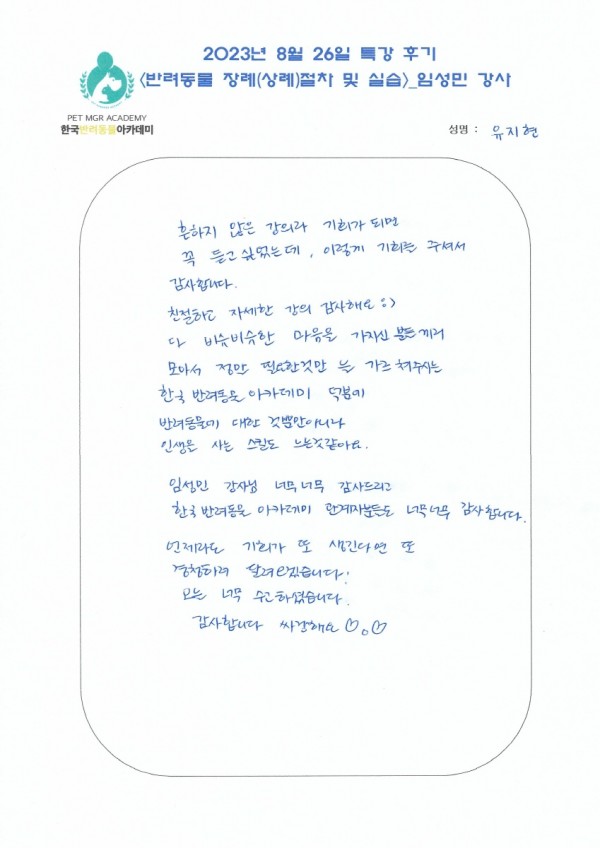 2023년 8월 26일 특강 후기
<반려동물 장례(상례)절차 및 실습>_임성민 강사
PET MGR ACADEMY
한국반려동물아카데미
성명 : 유지현
흔하지 않은 강의라 기회가 되면
꼭 듣고 싶었는데, 이렇게 기회를 주셔서
감사합니다.
친절하고 자세한 강의 감사해요 :)
다 비슷비슷한 마음을 가지신 분들끼리
모아서 정말 필요한것만 쏙 가르쳐주시는
한국 반려동물 아카데미 덕분에
반려동물에 대한 것뿐만아니라
인생을 사는 스킬도 느는것같아요.
임성민 강사님 너무너무 감사드리고
한국 반려동물 아카데미 관계자분들도 너무너무 감사합니다.
언제라도 기회가 또 생긴다면 또
경청하러 달려오겠습니다!
모두 너무 수고하셨습니다.
감사합니다 싸랑해요 ♡.♡